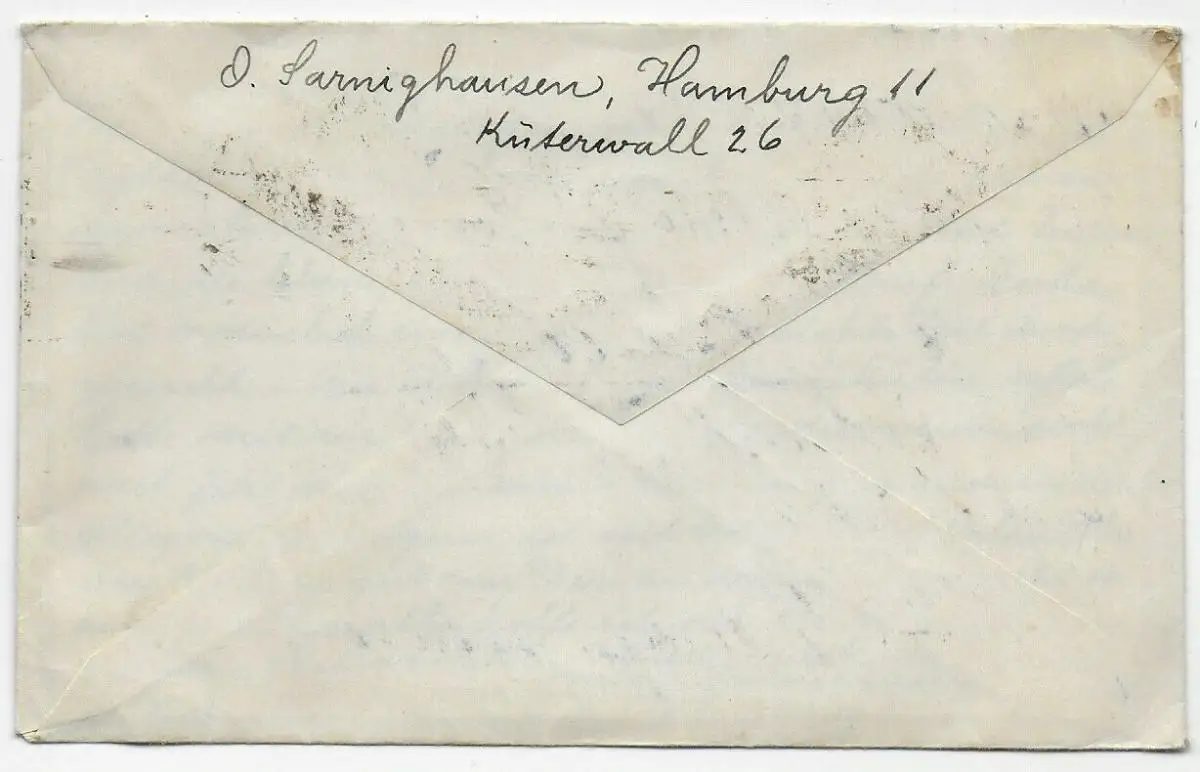 O. Sarnighausen, Hamburg 11
Küterwall 26